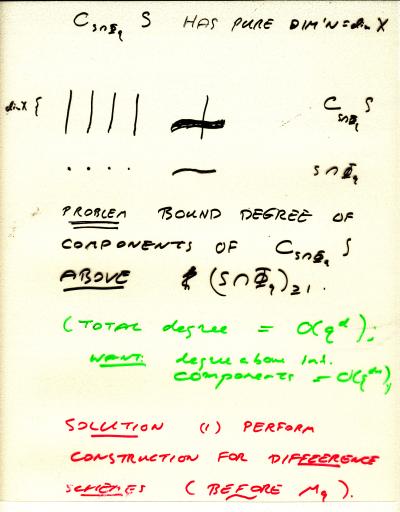 C_{S∩Φ_q} S HAS PURE DIM'N = dim X
dim X {
C_{S∩Φ_q} S
S∩Φ_q
PROBLEM BOUND DEGREE OF
COMPONENTS OF C_{S∩Φ_q} S
ABOVE (S∩Φ_q)_{≥1}.
(TOTAL degree = O(q^d);
WANT: degree above
components = O(
SOLUTION (1) PERFORM
CONSTRUCTION FOR DIFFERENCE
SCHEMES (BEFORE M_q).